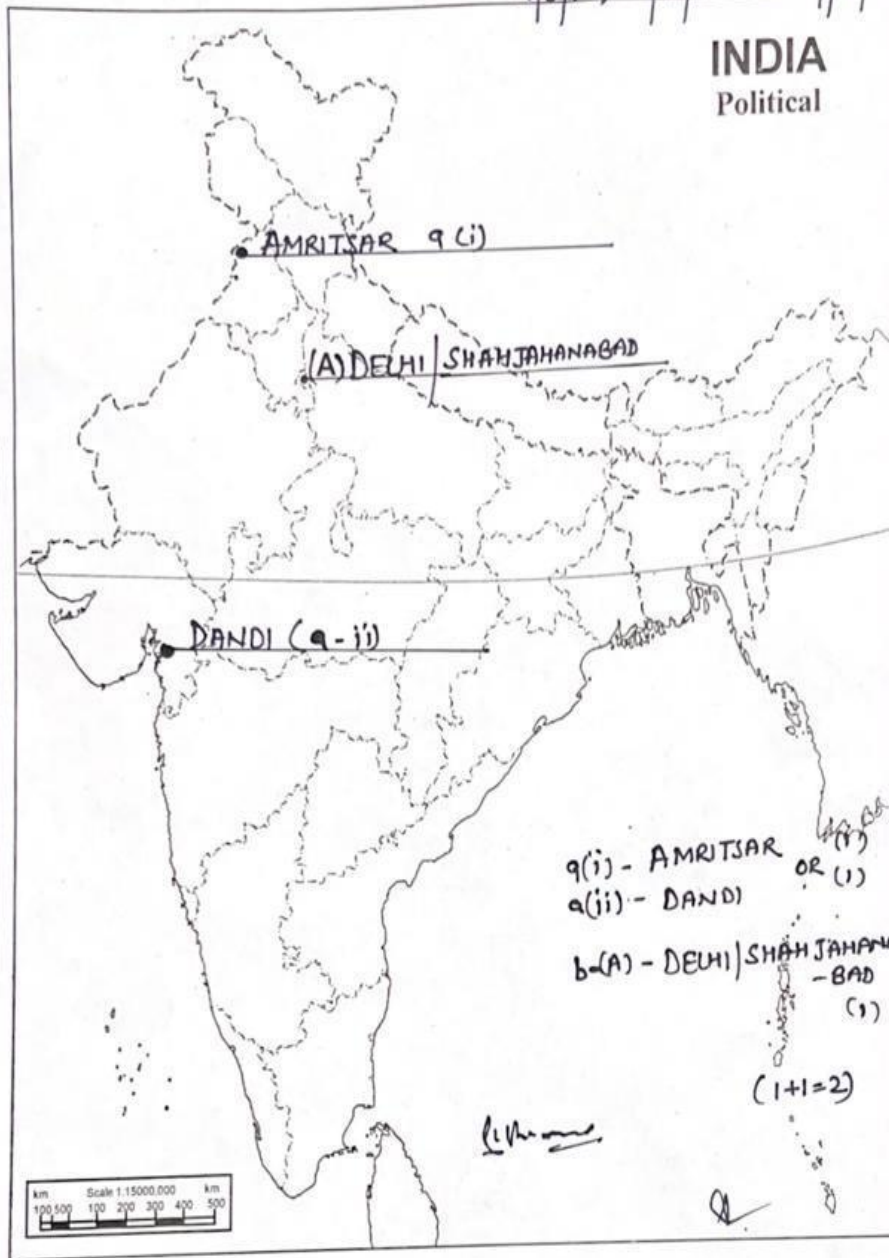 INDIA
Political
AMRITSAR a(i)
(A) DELHI | SHAHJAHANABAD
DANDI (a-ii)
a(i) - AMRITSAR (1)
OR
a(ii) - DANDI (1)
b-(A) - DELHI | SHAHJAHANA
-BAD
(1)
(1+1=2)
km Scale 1:15000,000 km
100 500 100 200 300 400 500